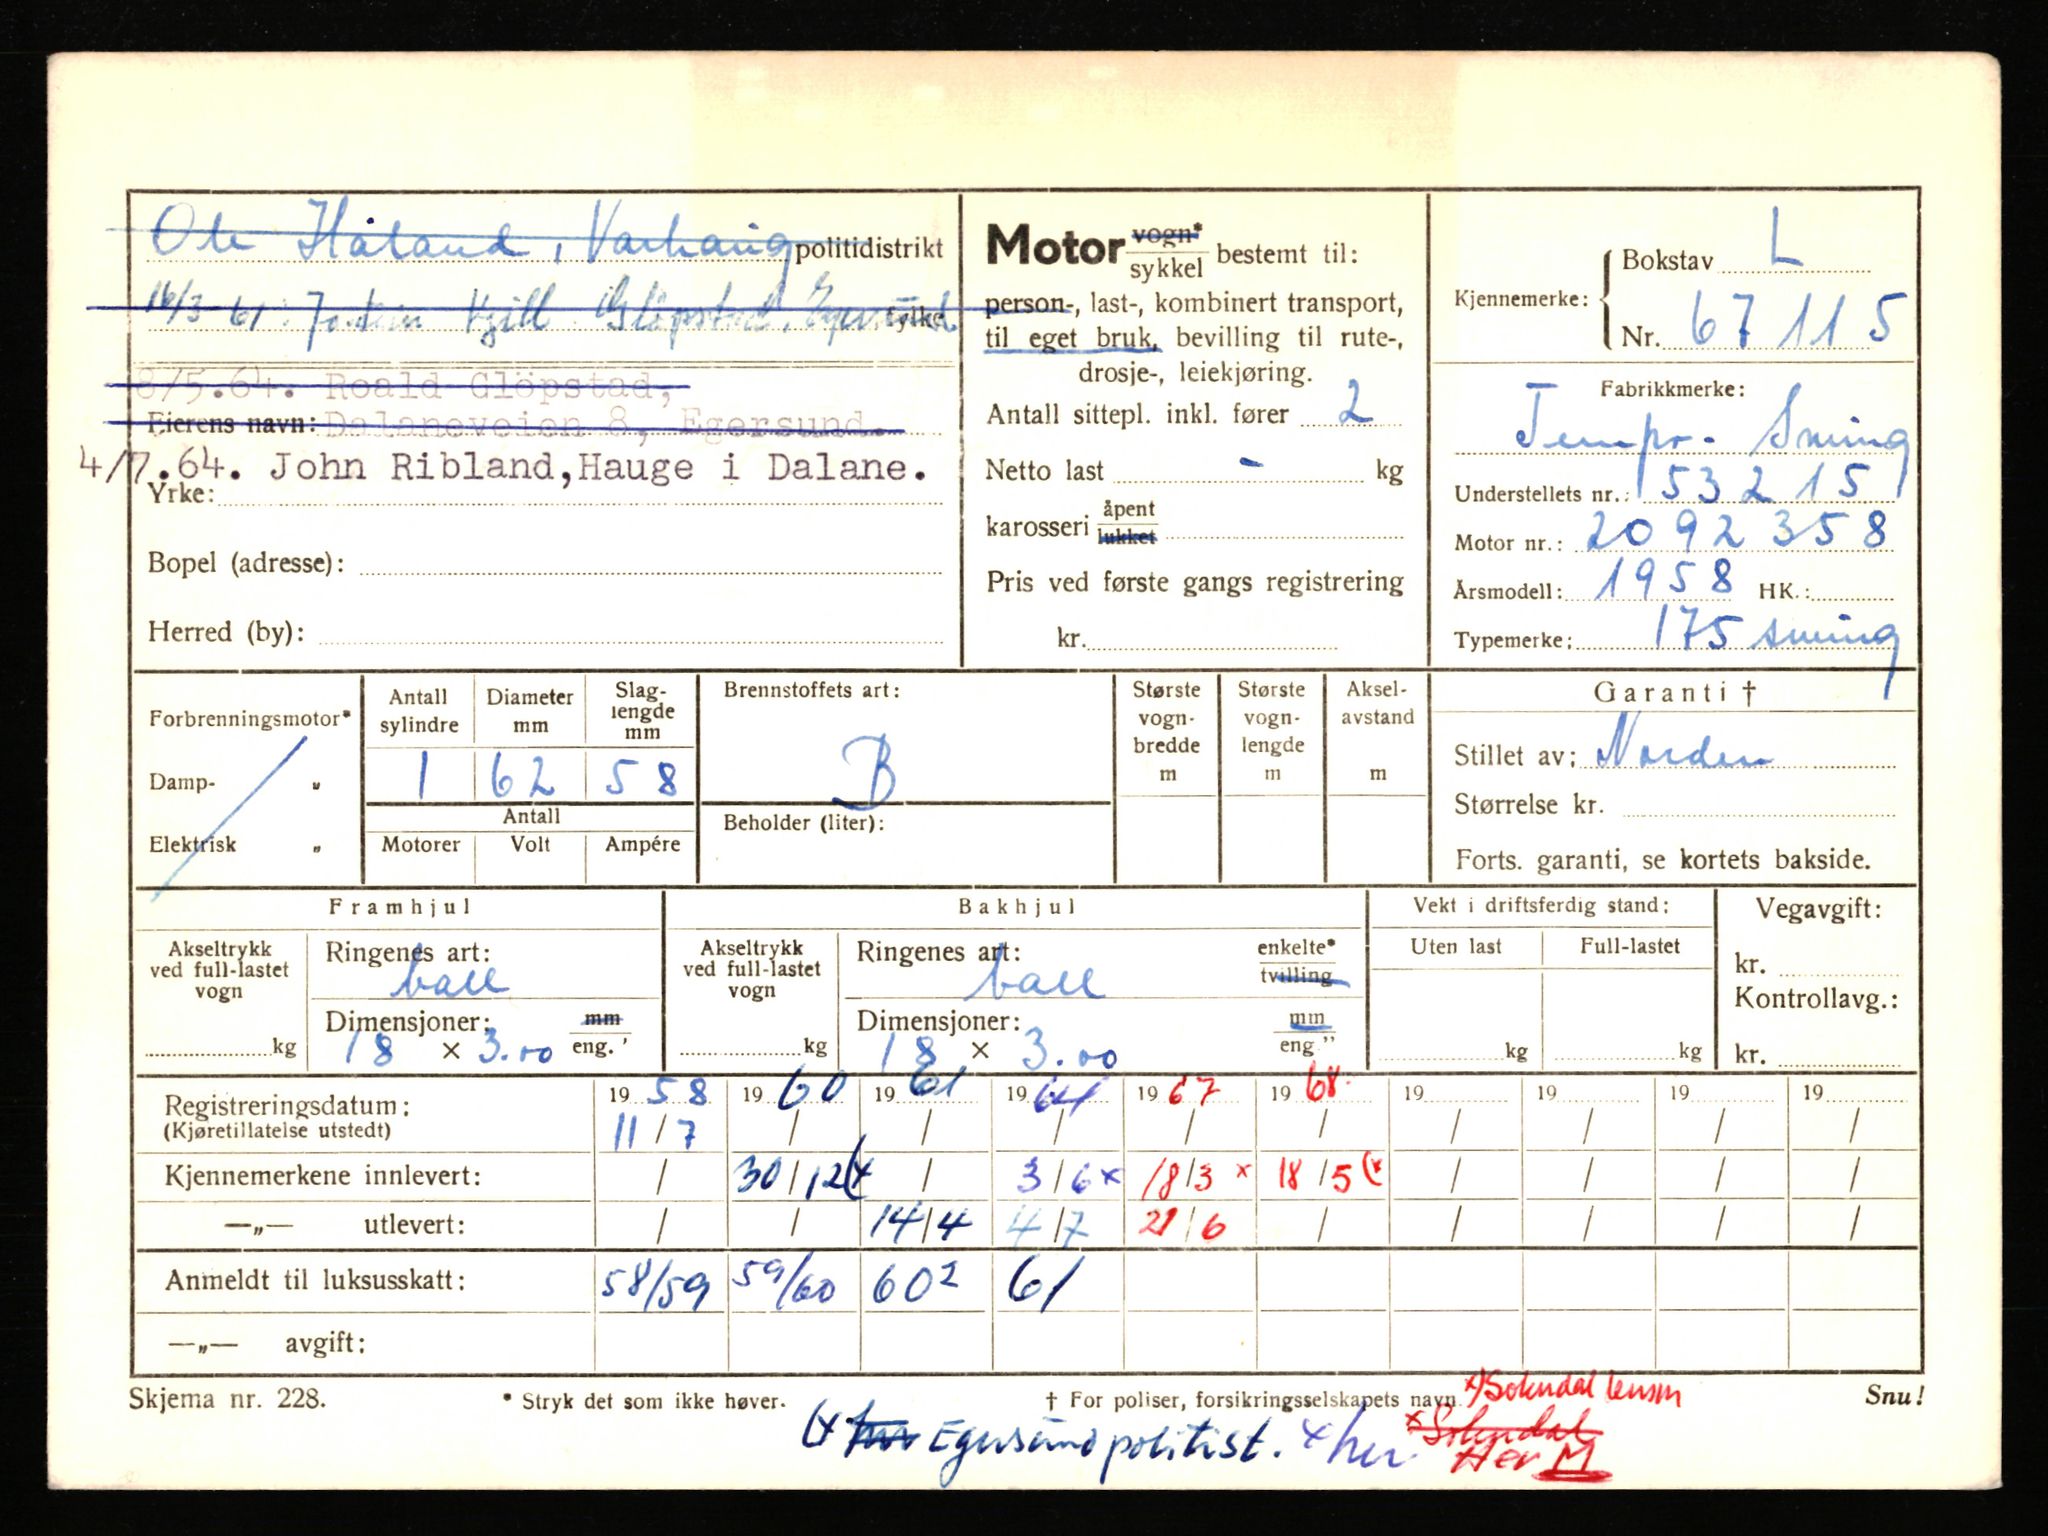 Ole Håland, Varhaug politidistrikt
16/3 61: Kjell Glöpstad, fylke
8/5.64. Roald Glöpstad,
Eierens navn: Dalaneveien 8, Egersund.
4/7.64. John Ribland, Hauge i Dalane.
Yrke:
Bopel (adresse):
Herred (by):
Motor vogn* sykkel bestemt til:
person-, last-, kombinert transport,
til eget bruk, bevilling til rute-,
drosje-, leiekjøring.
Antall sittepl. inkl. fører 2
Netto last - kg
karosseri åpent lukket
Pris ved første gangs registrering
kr.
Kjennemerke: Bokstav L
Nr. 67115
Fabrikkmerke:
Tempo- Swing
Understellets nr.: 153215
Motor nr.: 2092358
Årsmodell: 1958 HK.:
Typemerke: 175 swing
Forbrenningsmotor*
Damp- „
Elektrisk „
Antall sylindre Diameter mm Slag-lengde mm
1 62 58
Antall
Motorer Volt Ampére
Brennstoffets art:
B
Beholder (liter):
Største vogn-bredde m
Største vogn-lengde m
Aksel-avstand m
Garanti †
Stillet av: Norden
Størrelse kr.
Forts. garanti, se kortets bakside.
Framhjul
Akseltrykk ved full-lastet vogn kg
Ringenes art: ball
Dimensjoner: mm eng.'
18 × 3.00
Bakhjul
Akseltrykk ved full-lastet vogn kg
Ringenes art: ball enkelte* tvilling
Dimensjoner: mm eng."
18 × 3.00
Vekt i driftsferdig stand:
Uten last Full-lastet
kg kg
Vegavgift:
kr.
Kontrollavg.:
kr.
Registreringsdatum: 19 58 19 60 19 61 19 64 19 67 19 68. 19 19 19 19
(Kjøretillatelse utstedt) 11/7 / / / / / / / / /
Kjennemerkene innlevert: / 30/12(x / 3/6 x 18/3 x 18/5 (x / / / /
—„— utlevert: / / 14/4 4/7 21/6 / / / / /
Anmeldt til luksusskatt: 58/59 59/60 60² 61
—„— avgift:
Skjema nr. 228. * Stryk det som ikke høver. † For poliser, forsikringsselskapets navn. x) Sokndal lensm Snu!
(x her Egersund politist. x her x Sokndal
Her M